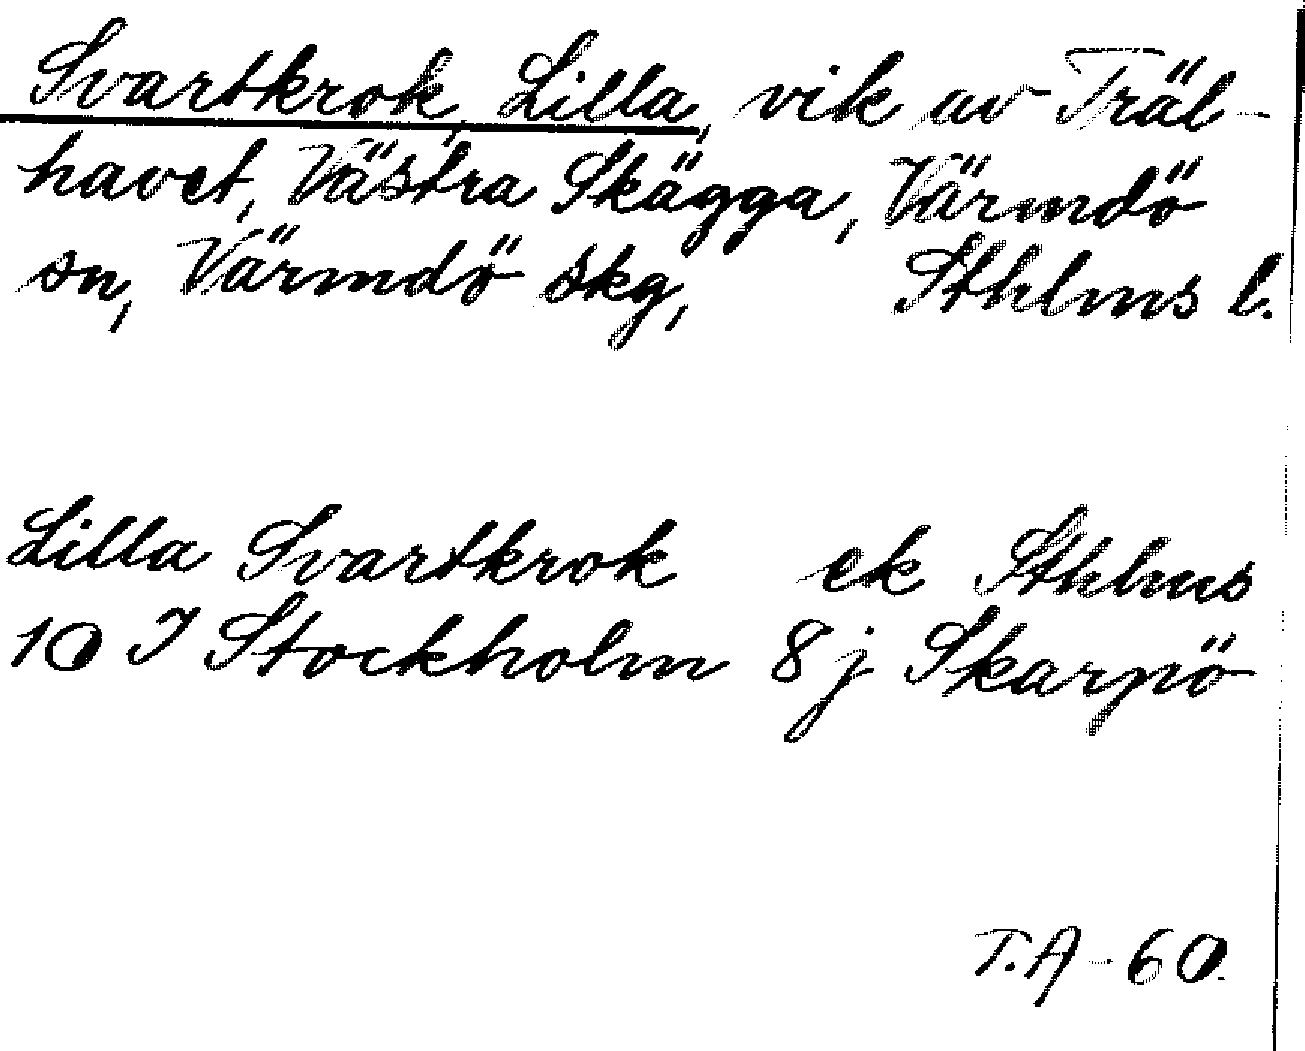 Svartkrok, Lilla, vik av Träl-
havet, Västra Skägga, Värmdö
sn, Värmdö skg, Sthlms l.
Lilla Svartkrok ek Sthlms
10 I Stockholm 8 j Skarpö
T.A-60